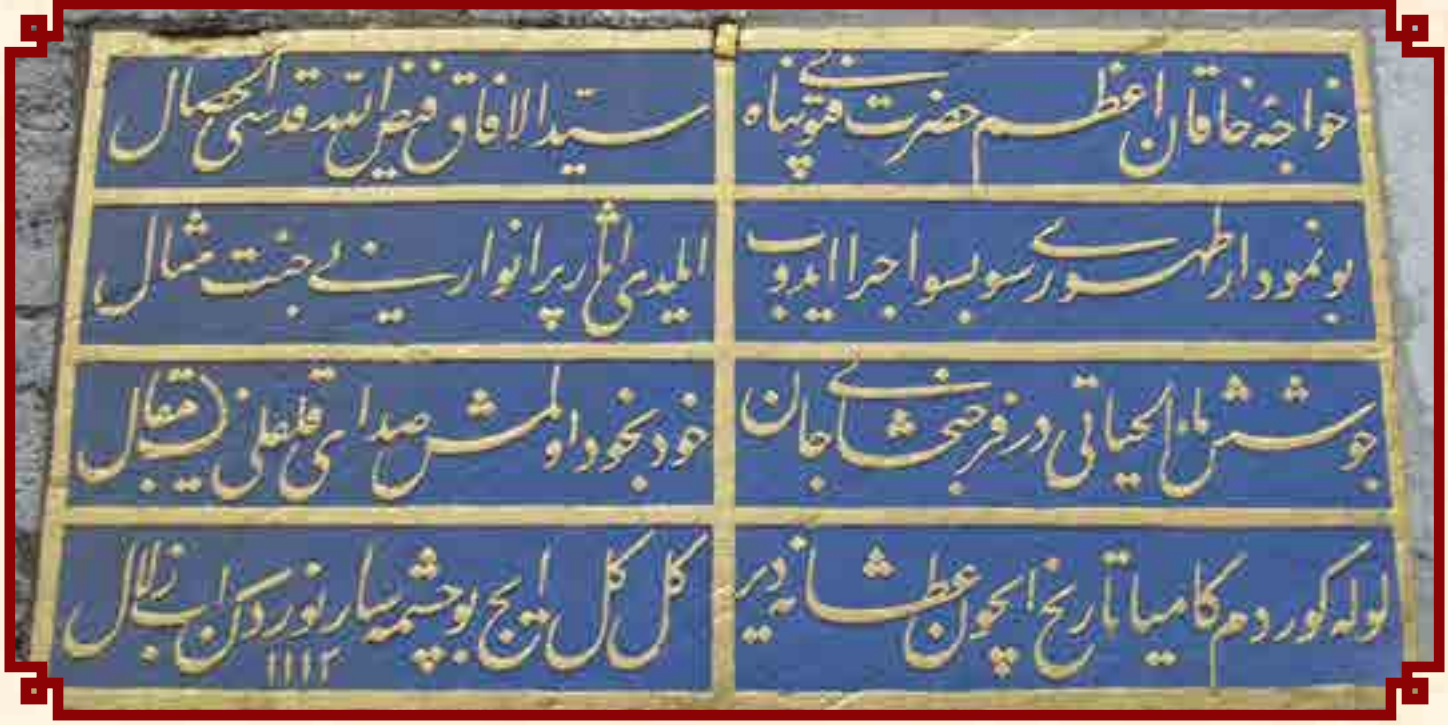 خواجهٔ خاقان اعظم حضرت فتوی پناه
سید الافاق فیض الله قدسی الخصال
بو نمودار ظهوری سو بسو اجرا ایدوب
ایلدی اثار پر انوارینی جنت مثال
جوشش ماء الحیاتی در فرح بخشای جان
خود بخود اولمش صدای قلقلی
لوله کوردم کامیا تاریخ ایچون عطشانه دیر
کل کل ایچ بو چشمه سار نوردن اب زلال
۱۱۱۲